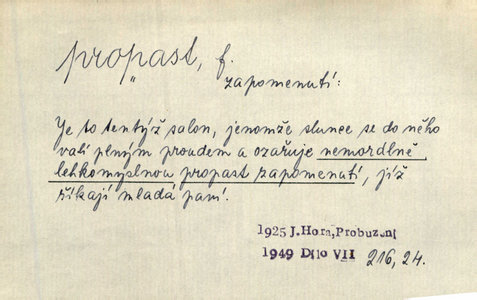 propast, f.
zapomenutí:
Je to tentýž salon, jenomže slunce se do něho
valí plným proudem a ozařuje nemordlně
lehkomyslnou propast zapomenutí, již
říkají mladá paní.
1925 J.Hora, Probuzení
1949 Dílo VII 216, 24.